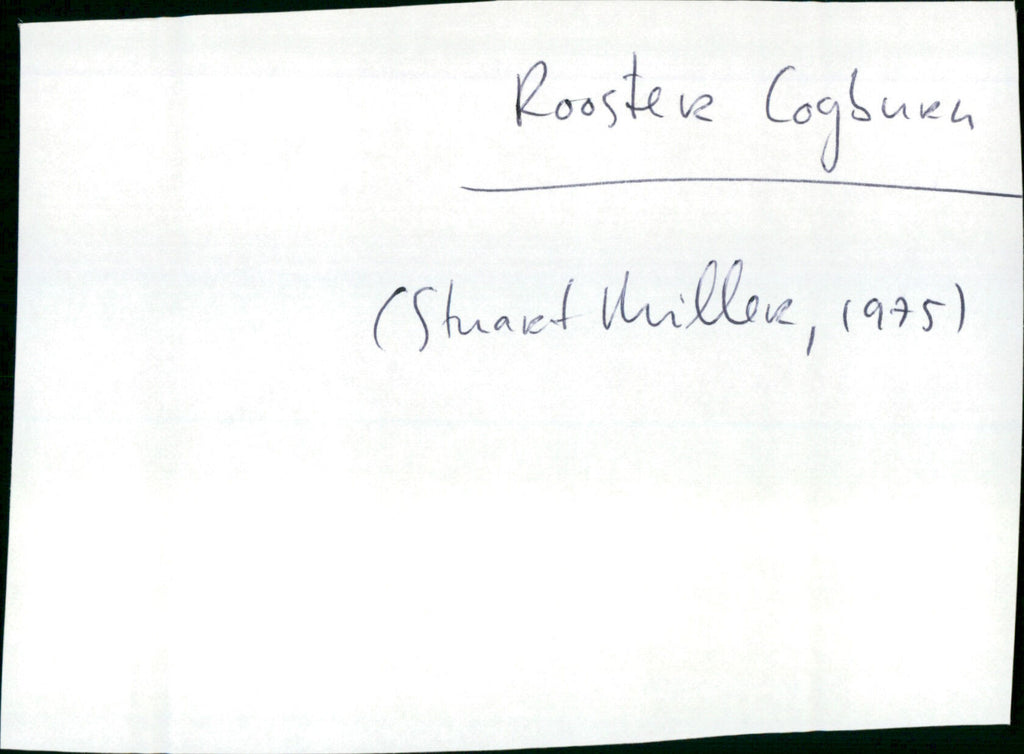 Rooster Cogburn
(Stuart Miller, 1975)